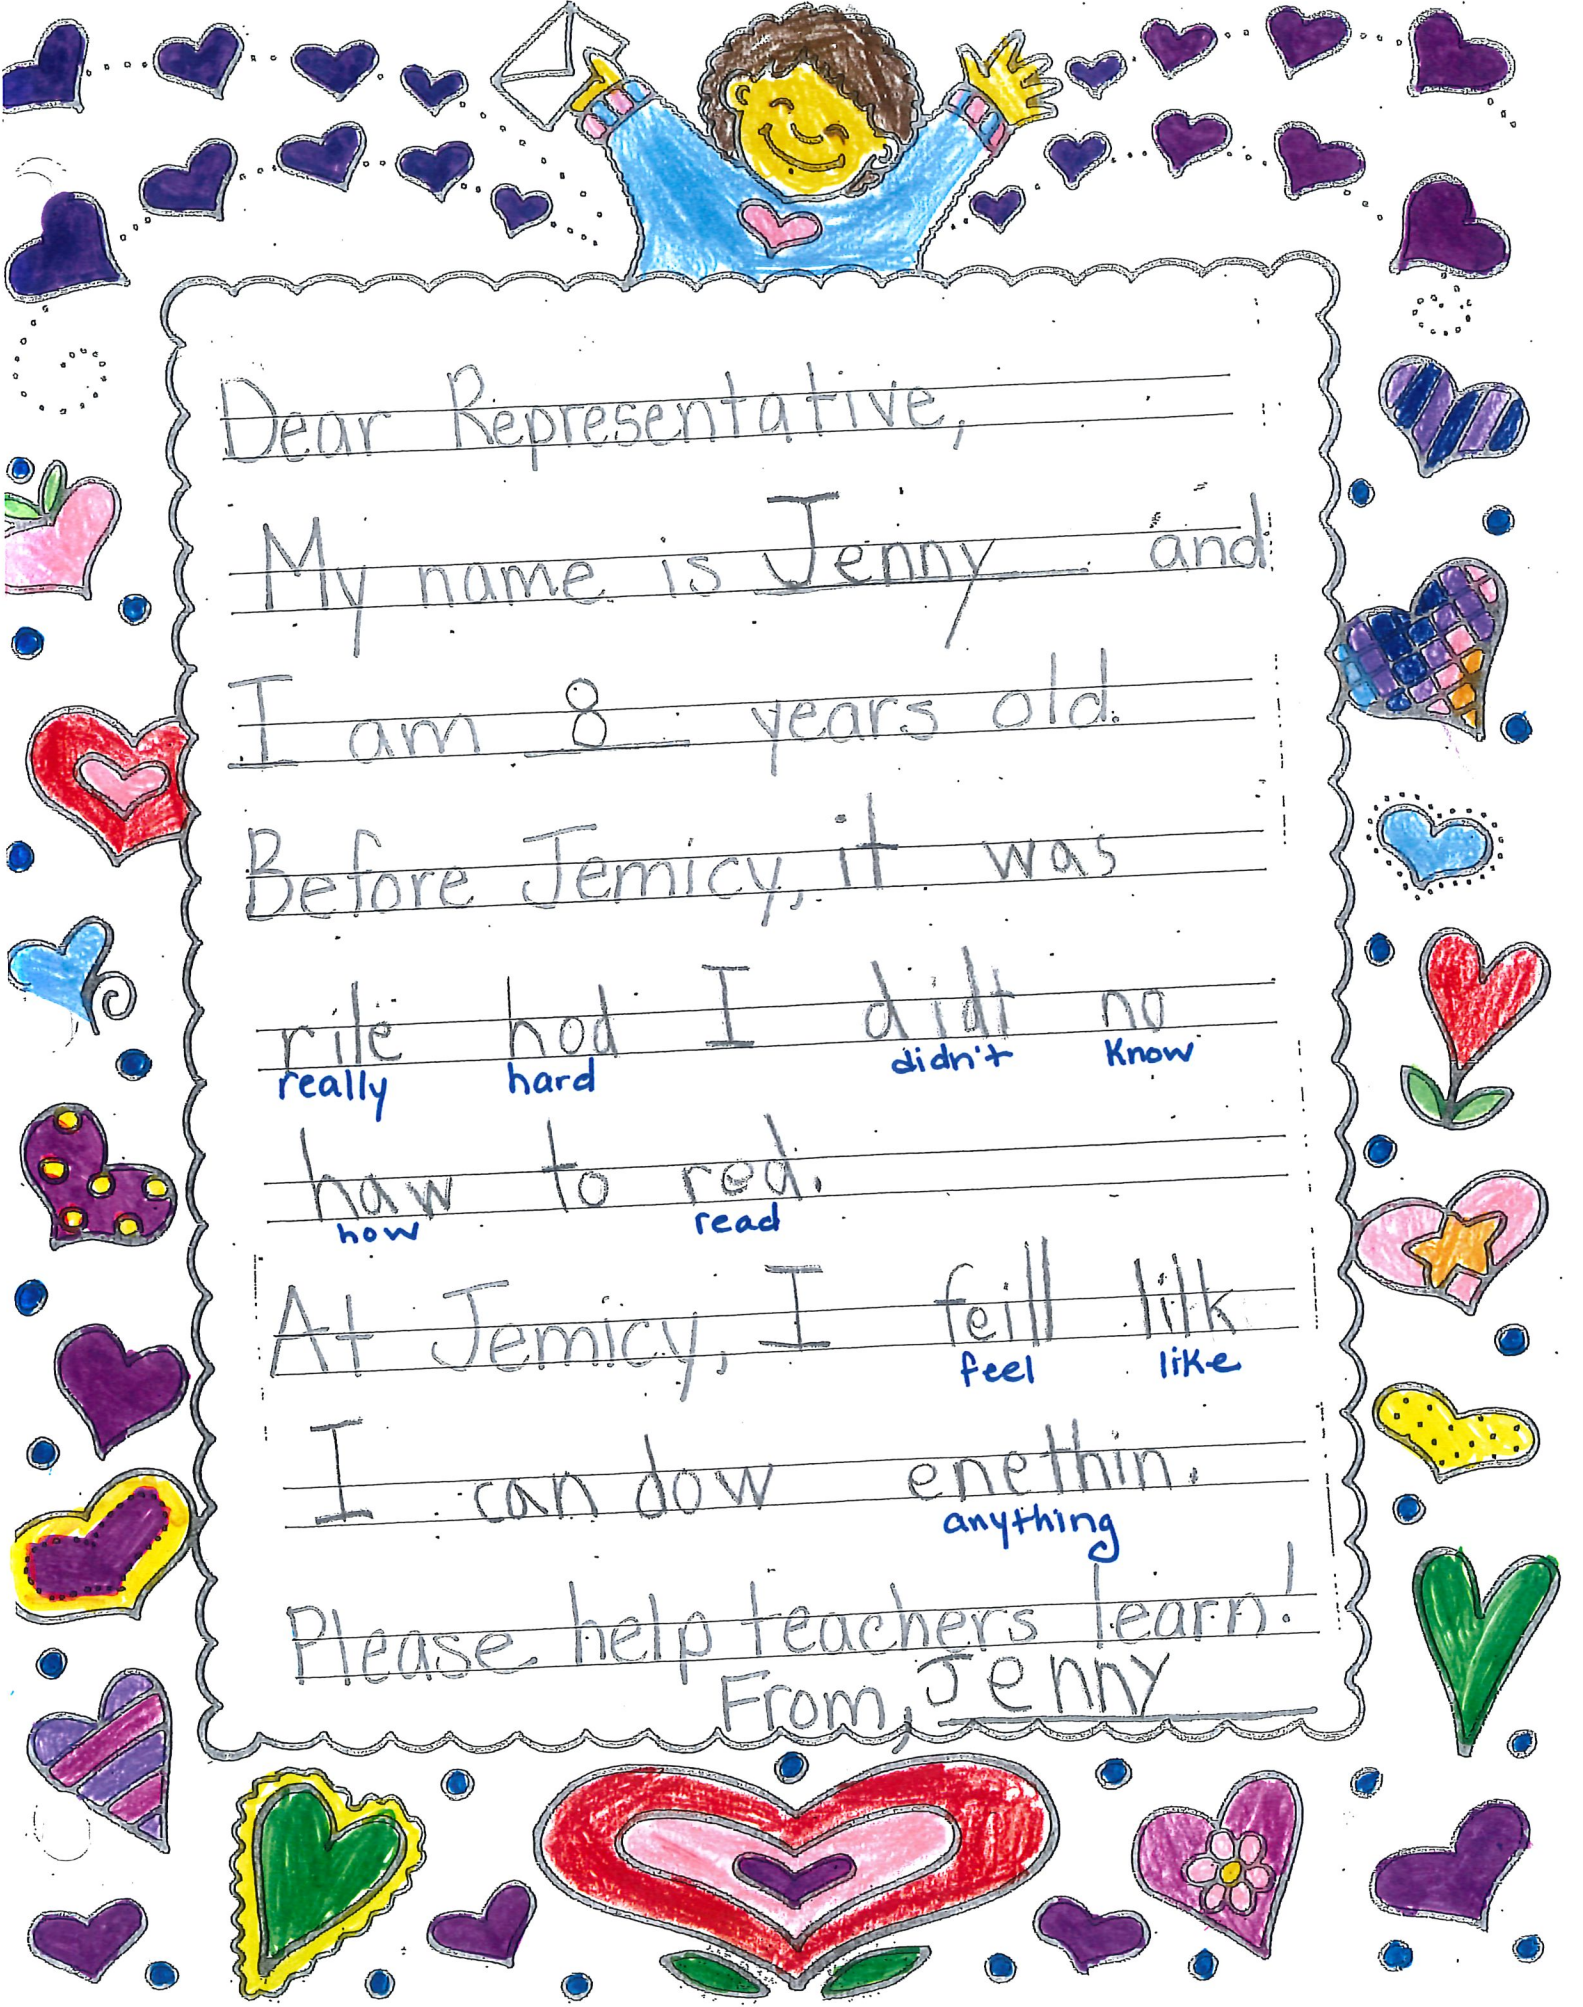 Dear Representative,
My name is Jenny and
I am 8 years old.
Before Jemicy, it was
rile hod I didt no
really hard didn't know
haw to red.
how read
At Jemicy, I feill lilk
feel like
I can dow enethin.
anything
Please help teachers learn!
From, Jenny